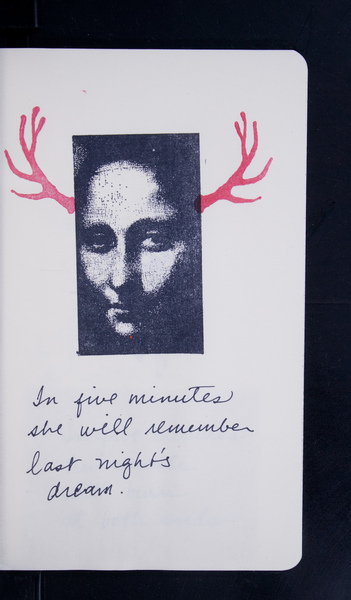 In five minutes
she will remember
last night's
dream.